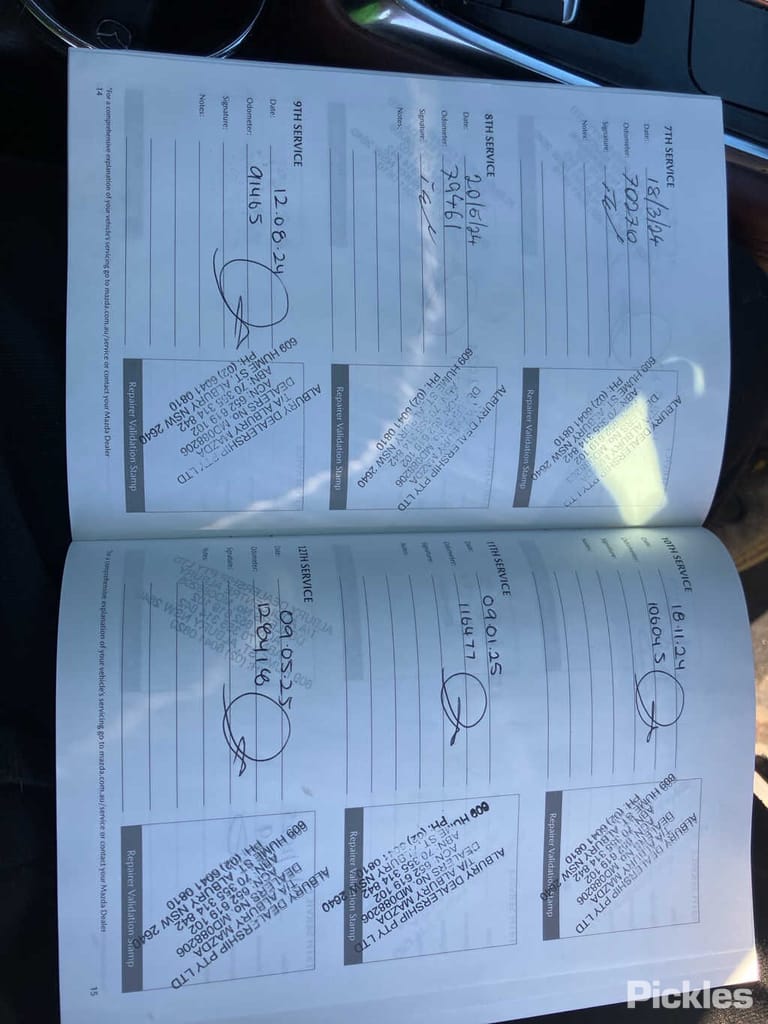 7TH SERVICE
Date: 18/3/24
Odometer: 70270
Signature:
Notes:
Repairer Validation Stamp
ALBURY DEALERSHIP PTY LTD
609 HUME ST ALBURY NSW 2640
PH: (02) 6041 0810
8TH SERVICE
Date: 20/5/24
Odometer: 79461
Signature:
Notes:
Repairer Validation Stamp
ALBURY DEALERSHIP PTY LTD
609 HUME ST ALBURY NSW 2640
PH: (02) 6041 0810
9TH SERVICE
Date: 12.08.24
Odometer: 91465
Signature:
Notes:
Repairer Validation Stamp
ALBURY DEALERSHIP PTY LTD
T/A ALBURY MAZDA
DEALERS NO. MD088206
ACN 652 819 102
ABN 70 355 314 842
609 HUME ST ALBURY NSW 2640
PH: (02) 6041 0810
*For a comprehensive explanation of your vehicle's servicing go to mazda.com.au/service or contact your Mazda Dealer
14
10TH SERVICE
Date: 18.11.24
Odometer: 106045
Signature:
Notes:
Repairer Validation Stamp
ALBURY DEALERSHIP PTY LTD
609 HUME ST ALBURY NSW 2640
PH: (02) 6041 0810
11TH SERVICE
Date: 09.01.25
Odometer: 116477
Signature:
Notes:
Repairer Validation Stamp
ALBURY DEALERSHIP PTY LTD
T/A ALBURY MAZDA
DEALERS NO. MD088206
ACN 652 819 102
ABN 70 355 314 842
609 HUME ST ALBURY NSW 2640
PH: (02) 6041 0810
12TH SERVICE
Date: 09.05.25
Odometer: 128418
Signature:
Notes:
Repairer Validation Stamp
ALBURY DEALERSHIP PTY LTD
T/A ALBURY MAZDA
DEALERS NO. MD088206
ACN 652 819 102
ABN 70 355 314 842
609 HUME ST ALBURY NSW 2640
PH: (02) 6041 0810
*For a comprehensive explanation of your vehicle's servicing go to mazda.com.au/service or contact your Mazda Dealer
15
Pickles